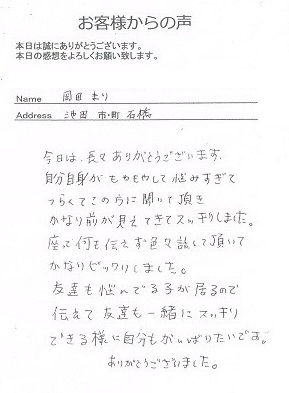 お客様からの声
本日は誠にありがとうございます。
本日の感想をよろしくお願い致します。
Name 岡田 まり
Address 池田 市・町 石橋
今日は、長々ありがとうございます、
自分自身が もやもやして 悩みすぎて
つらくて この方に 聞いて 頂き
かなり前が見えてきて スッキリしました。
座って 何も 伝えず 色々 話して 頂いて
かなり ビックリしました。
友達も 悩んでる子が 居るので
伝えて 友達も 一緒に スッキリ
できる様に 自分も がんばりたいです。
ありがとうございました。